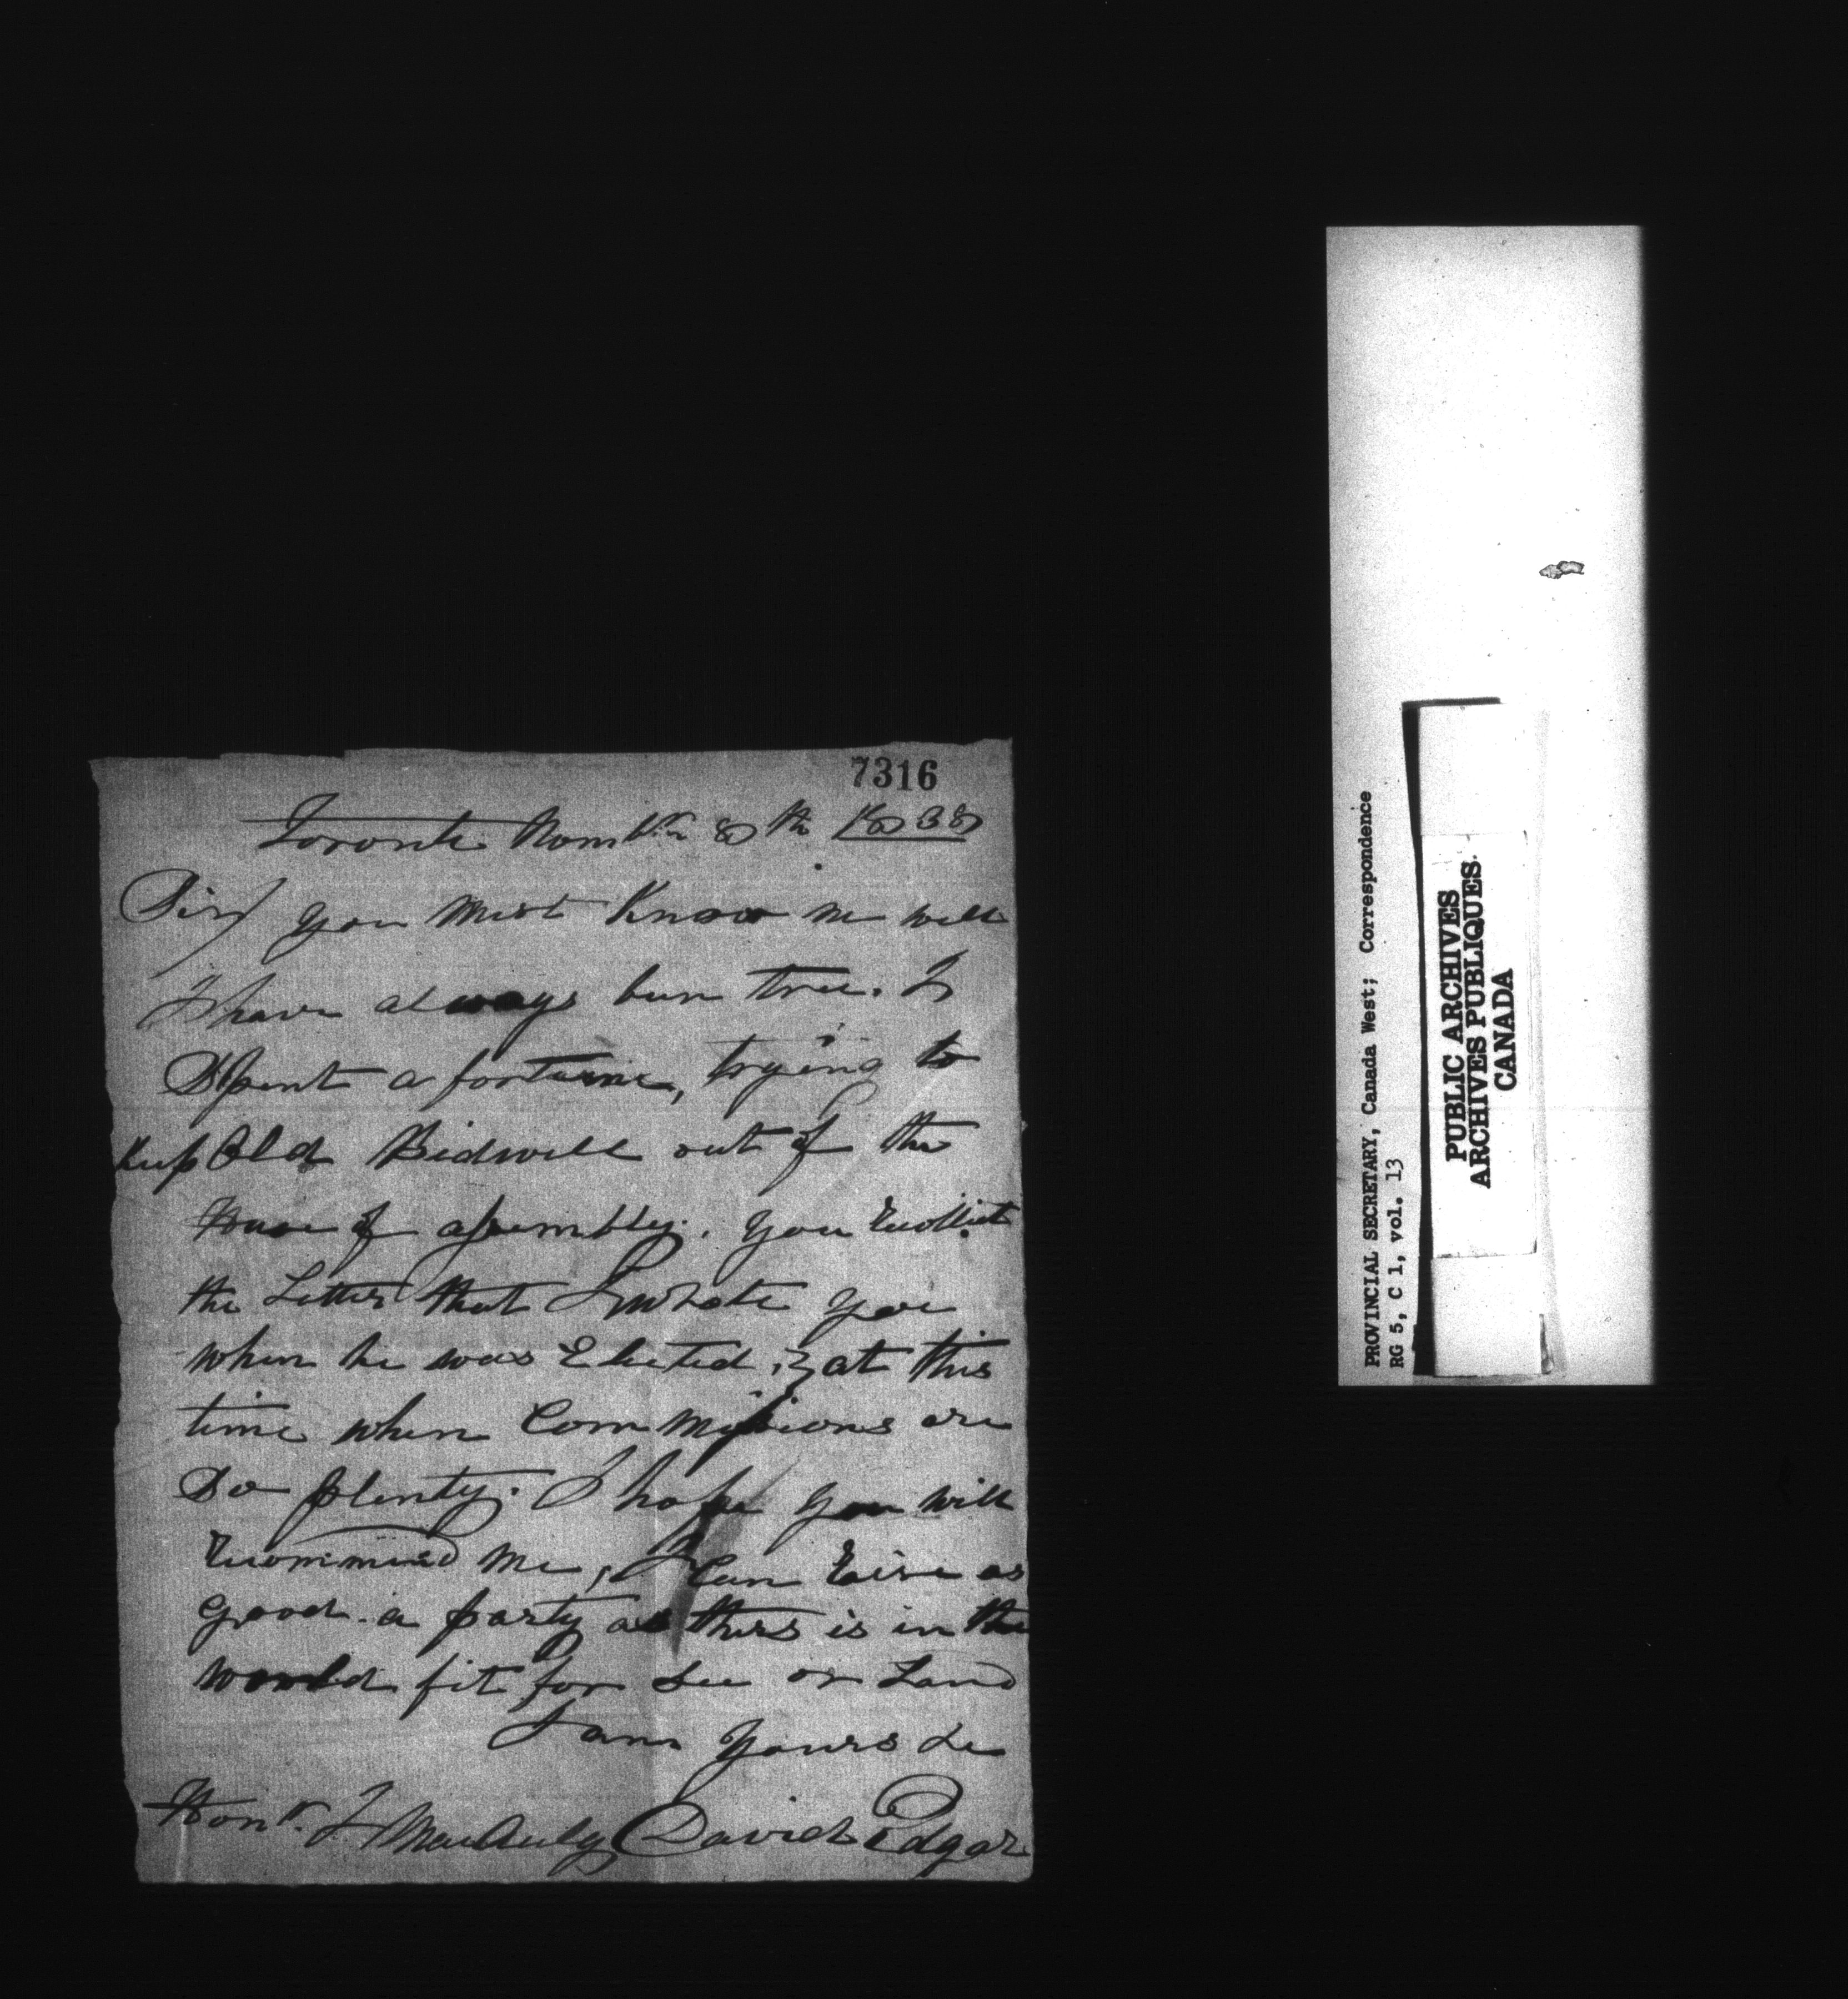 7316
Toronto Nombr 8th 1838
Sir/ you must Know me well
I have always been true. I
Spent a fortune, trying to
keep Old Bidwell out of the
House of assembly. you Recollect
the Letter that I wrote you
when he was Elected, & at this
time when Commissions are
So plenty. I hope you will
Recommend me, I Can Raise as
good a party as thers is in the
world fit for See or Land
I am yours &c
Honr. J MacAuly David Edgar
PROVINCIAL SECRETARY, Canada West; Correspondence
RG 5, C 1, vol. 13
PUBLIC ARCHIVES
ARCHIVES PUBLIQUES
CANADA